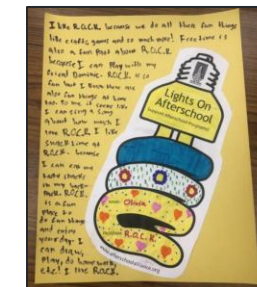 I like R.O.C.K. because we do all these fun things
like crafts, games and so much more! Free time is
also a fun part about R.O.C.K.
because I can play with my
friend Dominic. R.O.C.K. is so
fun but I think there are
also fun things at home
too. To me it seems like
I can sing a song
about how much I
love R.O.C.K. I like
snack time at
R.O.C.K. because
I can eat my
tasty snacks
in my back-
pack. R.O.C.K.
is a fun
place to
do fun things
and enjoy
your day. I
can draw,
play, do homework,
etc! I love R.O.C.K.
Lights On
Afterschool
NAME: Olivia
R.O.C.K.
www.afterschoolalliance.org